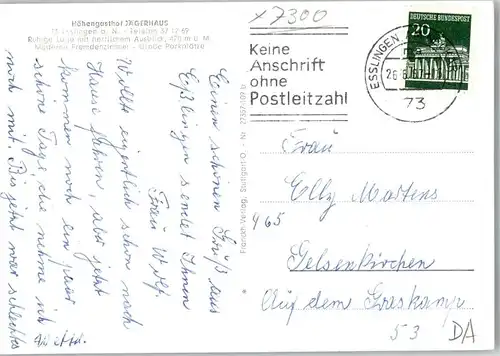 Höhengasthof JÄGERHAUS
73 Esslingen a. N. - Telefon 37 12 69
Ruhige Lage mit herrlichem Ausblick, 470 m ü. M.
Moderne Fremdenzimmer - Große Parkplätze
Einen schönen Gruß aus
Eßlingen sendet Ihnen
Frau Wolf.
Wollte eigentlich schon nach
Hause fahren, aber jetzt
kommen noch ein paar
schöne Tage, die nehme ich
noch mit. Bis jetzt war schlechtes
Franckh-Verlag, Stuttgart O. - Nr.
x 7300
Keine
Anschrift
ohne
Postleitzahl
ESSLINGEN
26.6
73
DEUTSCHE BUNDESPOST
20
Frau
Elly Martens
465
Gelsenkirchen
Auf dem Graskamp
53
DA